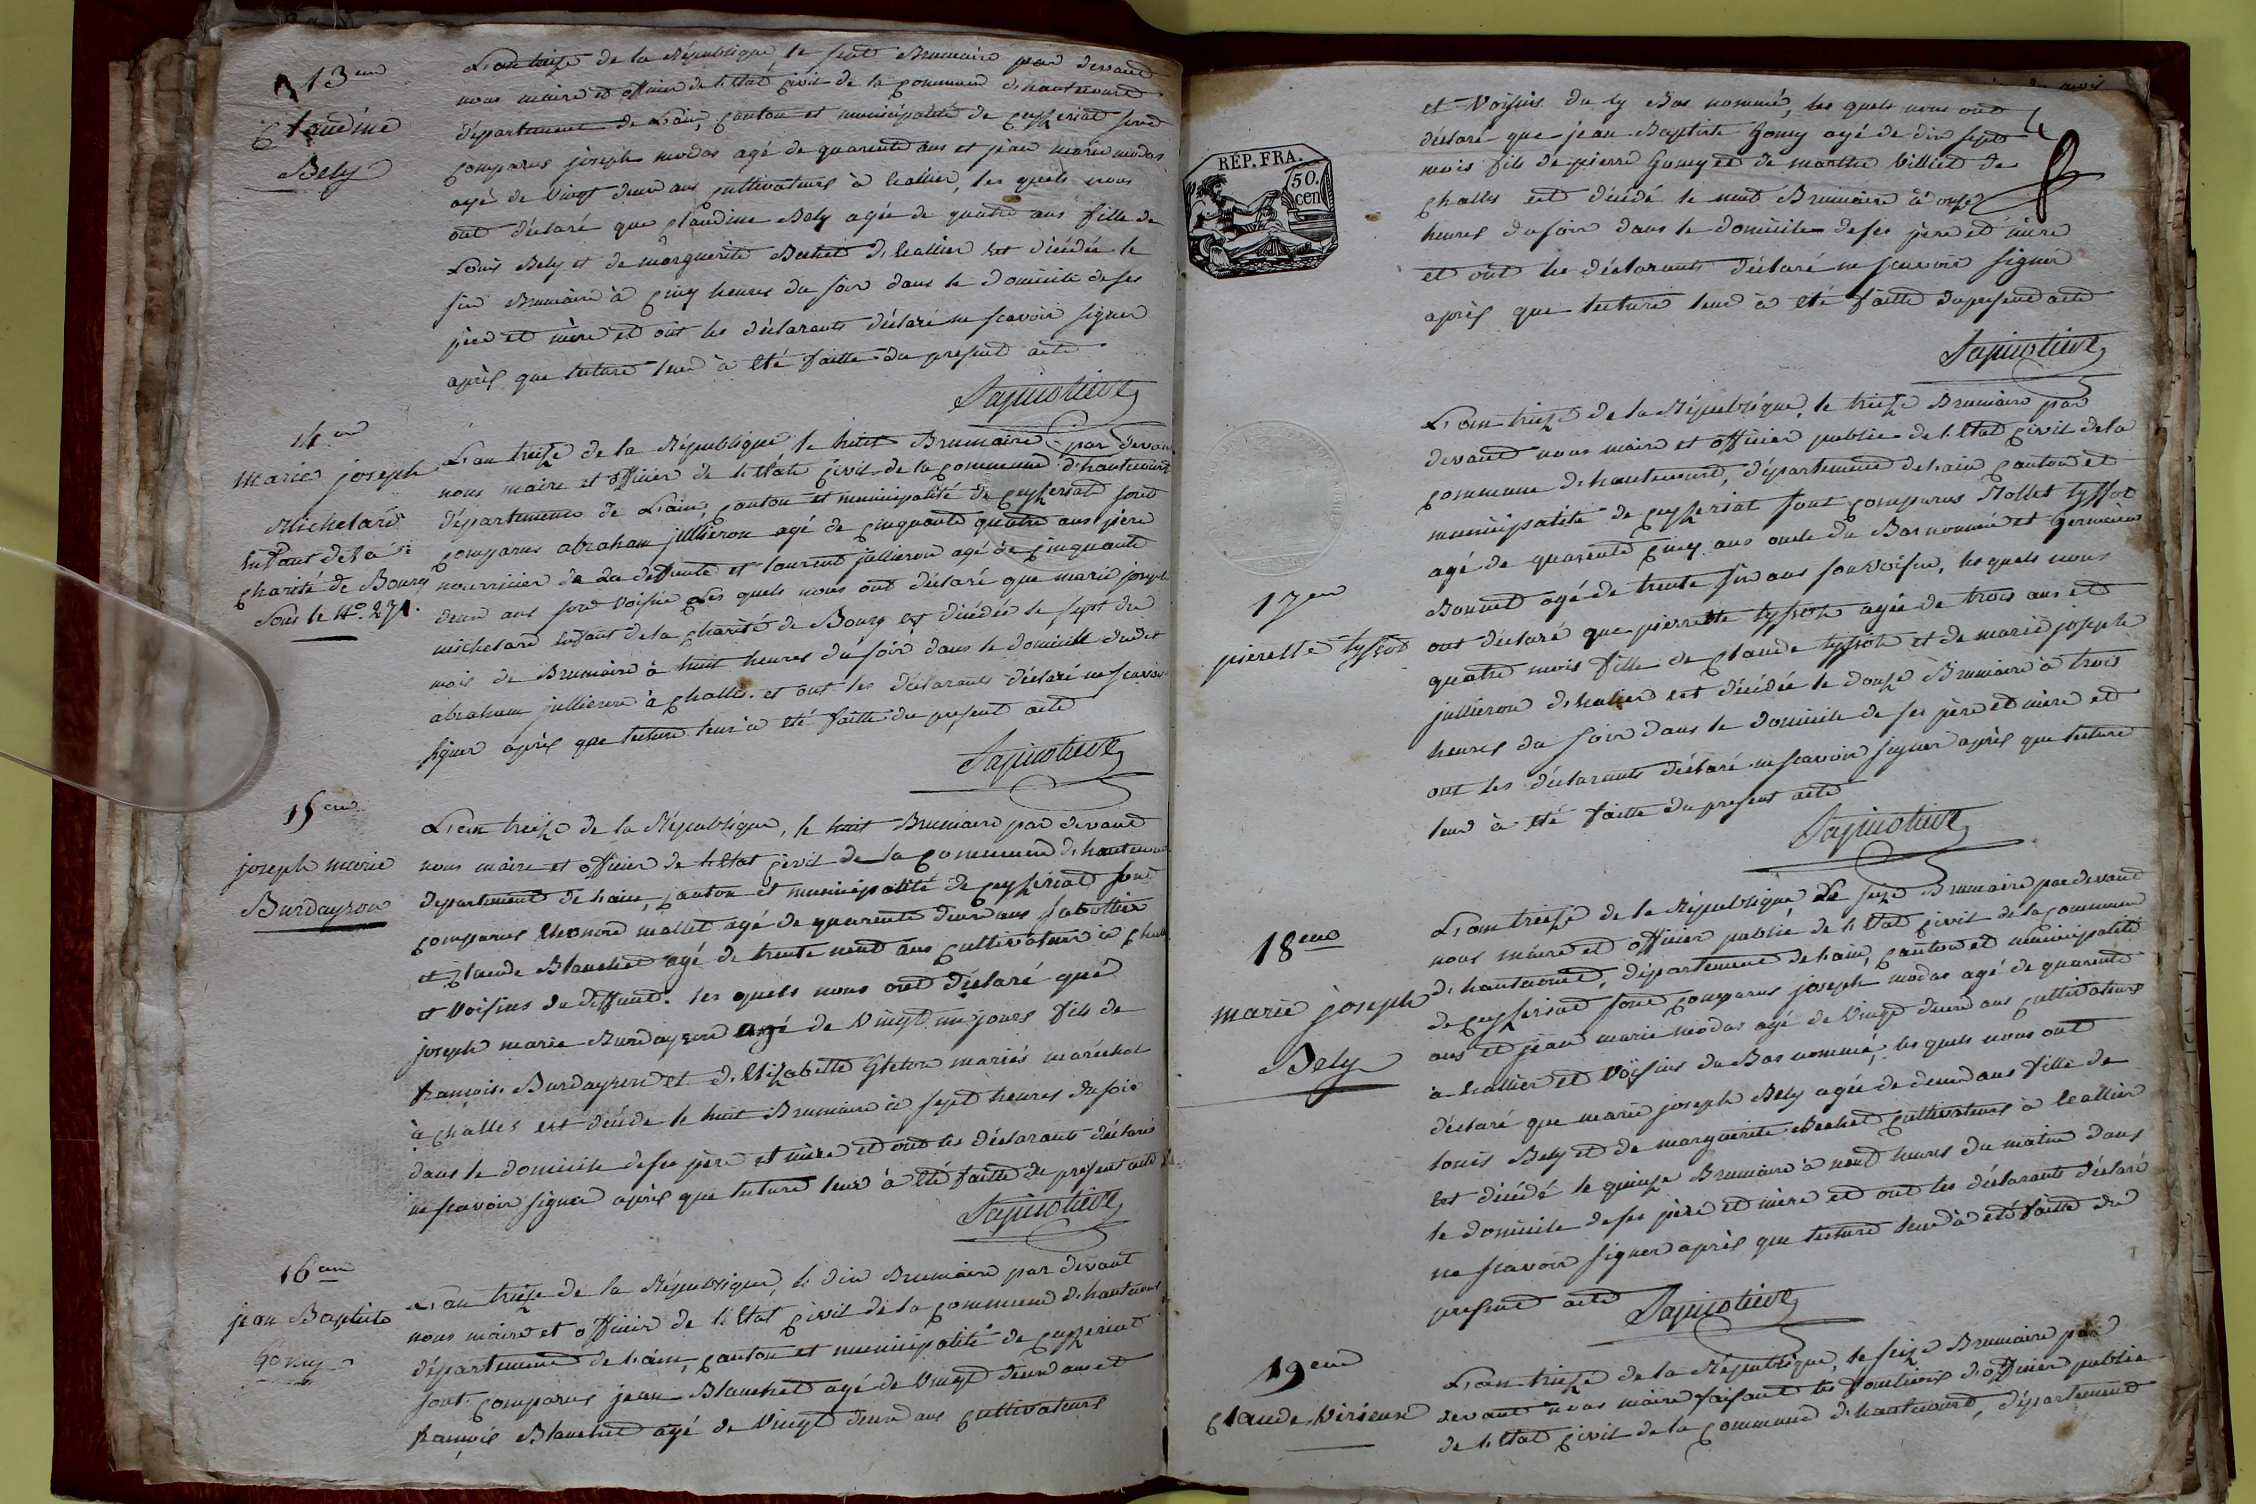 13eme
Claudine
Bely
L'an treize de la République, le sept Brumaire par devant
nous maire et officier de l'Etat civil de la commune d'hautecourt
département de L'ain, canton et municipalité de ceyzeriat sont
comparus joseph modas agé de quarente ans et jean marie modas
agé de vingt deux ans cultivateurs à leallier, les quels nous
ont déclaré que Claudine Bely agée de quatre ans fille de
Louis Bely et de marguerite Bechet de leallier est décédée le
six Brumaire à cinq heures du soir dans le domicile de ses
père et mère et ont les déclarants déclaré ne scavoir signer
après que lecture leur à été faitte du present acte
14eme
marie joseph
Michelard
Enfant de la
charité de Bourg
sous le No. 271.
L'an treize de la République le huit Brumaire par devant
nous maire et officier de l'état civil de la commune d'hautecourt
département de L'ain, canton et municipalité de ceyzeriat sont
comparus abraham jullieron agé de cinquante quatre ans père
nourricier de La deffunte et laurent jullieron agé de cinquante
deux ans son voisin Les quels nous ont déclaré que marie joseph
michelard enfant de la charité de Bourg est décédée le sept du
mois de Brumaire à huit heures du soir dans le domicile dudit
abraham jullieron à challes. et ont les déclarants déclaré ne scavoir
signer après que lecture leur à été faitte du present acte
15eme
joseph marie
Burdayron
L'an treize de la République, le huit Brumaire par devant
nous maire et officier de l'Etat civil de la commune d'hautecourt
département de L'ain, canton et municipalité de ceyzeriat sont
comparus mallet agé de quarente deux ans
et Claude Blanchet agé de trente neuf ans cultivateur à
et voisins du deffunt. les quels nous ont déclaré que
joseph marie Burdayron agé de vingt un jours fils de
françois Burdayron et d'Elizabette Gleton mariés maréchal
à challes est décédé le huit Brumaire à sept heures du soir
dans le domicile de ses père et mère et ont les déclarants déclaré
ne scavoir signer après que lecture leur à été faitte du present acte
16eme
jean Baptiste
Gomy
L'an treize de la République, le dix Brumaire par devant
nous maire et officier de l'Etat civil de la commune d'hautecourt
département de L'ain, canton et municipalité de ceyzeriat
sont comparus jean Blanchet agé de vingt deux ans et
françois Blanchet agé de vingt deux ans cultivateurs
RÉP. FRA.
50.
cen
et voisins du cy Bas nommé, les quels nous ont
déclaré que jean Baptiste Gomy agé de dix sept
mois fils de pierre Gomy et de marthe billiet de
challes est décédé le neuf Brumaire à onze
heures du soir dans le domicile de ses père et mère
et ont les déclarants déclaré ne scavoir signer
après que lecture leur à été faitte du present acte
17eme
pierette tyssot
L'an treize de la République, le treize Brumaire par
devant nous maire et officier public de l'Etat civil de la
commune d'hautecourt, département de L'ain canton et
municipalité de ceyzeriat sont comparus tyssot
agé de quarente cinq ans oncle du Bas nommé et
Bonnet agé de trente six ans son voisin, les quels nous
ont déclaré que pierrette tyssot agée de trois ans et
quatre mois fille de claude tyssot et de marie joseph
jullieron de leallier est décédée le douze Brumaire à trois
heures du soir dans le domicile de ses père et mère et
ont les déclarants déclaré ne scavoir signer après que lecture
leur à été faitte du present acte
18eme
marie joseph
Bely
L'an treize de la République Le seize Brumaire par devant
nous maire et officier public de l'Etat civil de la commune
d'hautecourt, département de L'ain, canton et municipalité
de ceyzeriat sont comparus joseph modas agé de quarente
ans et jean marie modas agé de vingt deux ans cultivateurs
à leallier et voisins du Bas nommé, les quels nous ont
déclaré que marie joseph Bely agée de deux ans fille de
louis Bely et de marguerite Bechet cultivateurs à leallier
est décédé le quinze Brumaire à neuf heures du matin dans
le domicile de ses père et mère et ont les déclarants déclaré
ne scavoir signer après que lecture leur à été faitte du
present acte
19eme
Claude Virieux
L'an treize de la République, le seize Brumaire par
devant nous maire faisant les fonctions d'officier public
de l'Etat civil de la commune d'hautecourt, département